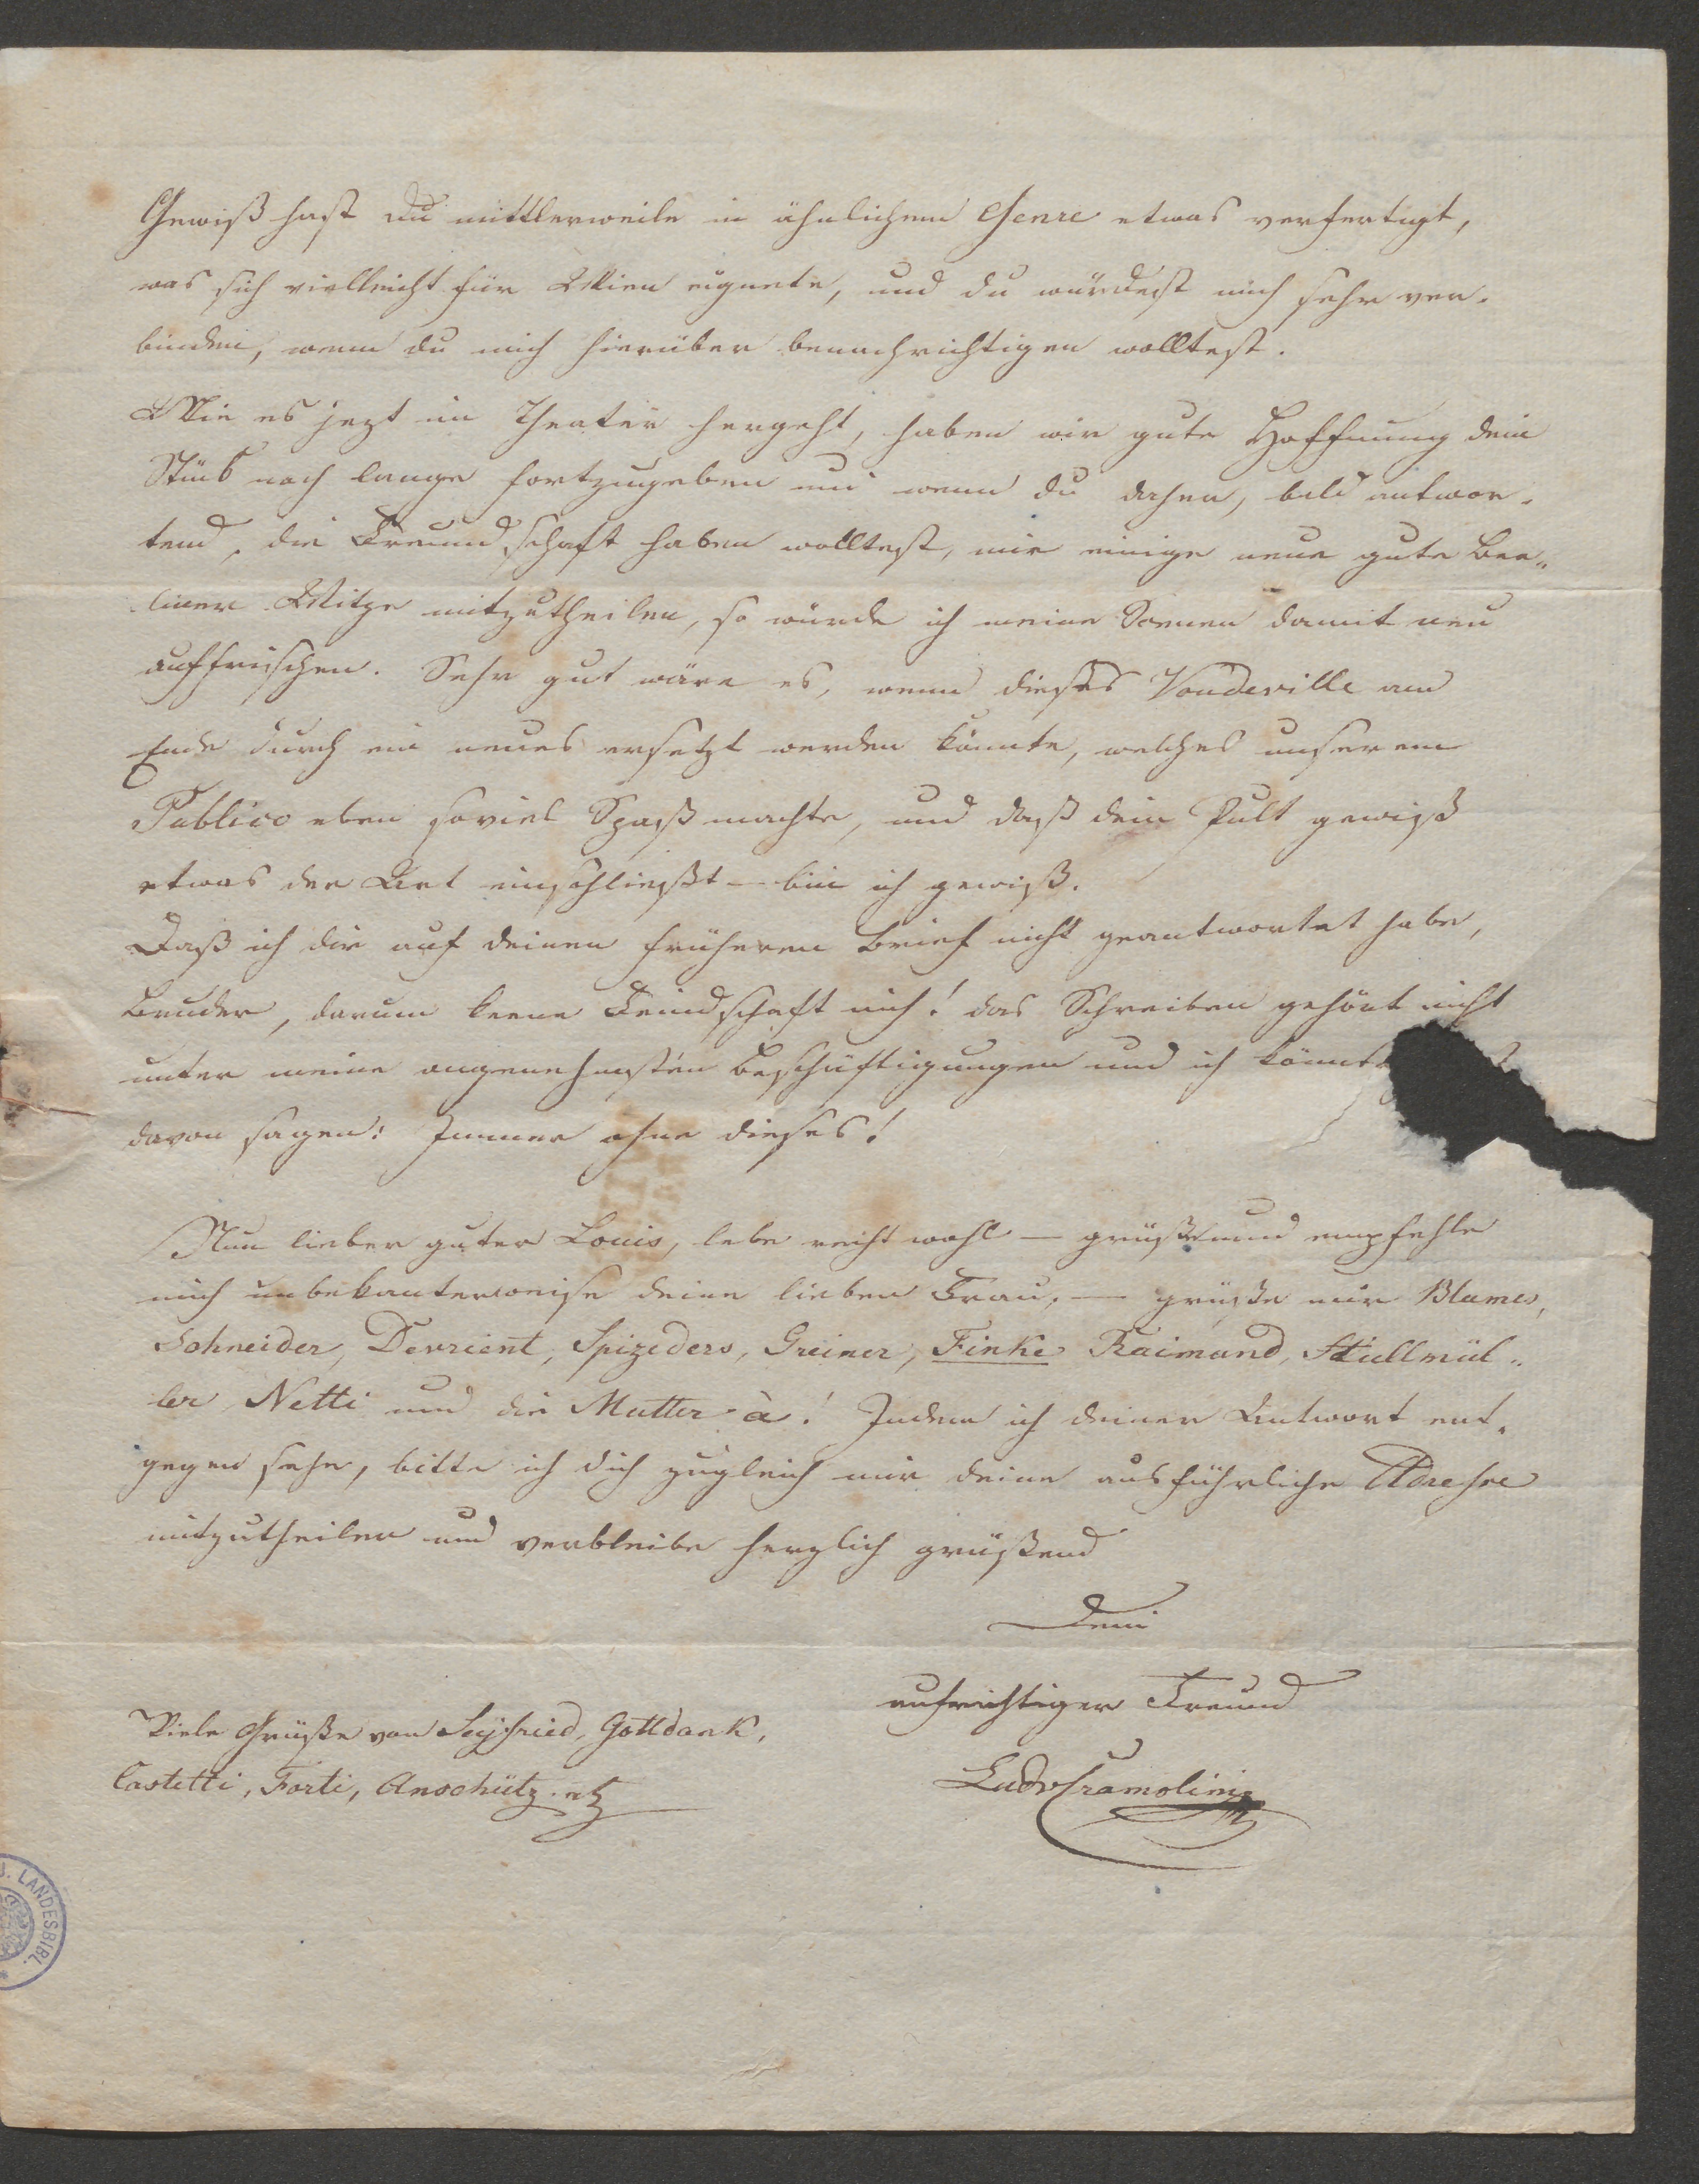 Gewiß hast du mittlerweile in ähnlichem Genre etwas verfertigt,
was sich vielleicht für Wien eignete, und du würdest mich sehr ver-
binden, wenn du mich hierüber benachrichtigen wolltest.
Wie es jezt im Theater hergeht, haben wir gute Hoffnung dein
Stück noch lange fortzugeben und wenn du daher, bald antwor-
tend, die Freundschaft haben wolltest, mir einige neue gute Ber„
liner Witze mitzutheilen, so würde ich meine Scenen damit neu
auffrischen. Sehr gut wäre es, wenn dieses Vaudeville am
Ende durch ein neues ersetzt werden könnte, welches unserem
Publico eben soviel Spaß machte, und daß dein Pult gewiß
etwas der Art einschließt – bin ich gewiß.
Daß ich dir auf deinen früheren Brief nicht geantwortet habe,
Bruder, darum keene Feindschaft nich! das Schreiben gehört nicht
unter meine angenehmsten Beschäftigungen und ich könnte
davon sagen: Immer ohne dieses!
Nun lieber guter Louis, lebe recht wohl – grüße und empfehle
mich unbekanterweise deine lieben Frau, – grüße mir Blumes,
Schneider, Devrient, Spizeders, Greiner, Finke Raimund, Stullmül„
ler Netti und die Mutter à! Indem ich deiner Antwort ent-
gegen sehe, bitte ich dich zugleich mir deine ausführliche Adresse
mitzutheilen und verbleibe herzlich grüßend
Dein
aufrichtiger Freund
Ludw Cramolini
Viele Grüße von Seyfried, Gottdank,
Castelli, Forti, Anschütz. etz
LANDESBIBL.